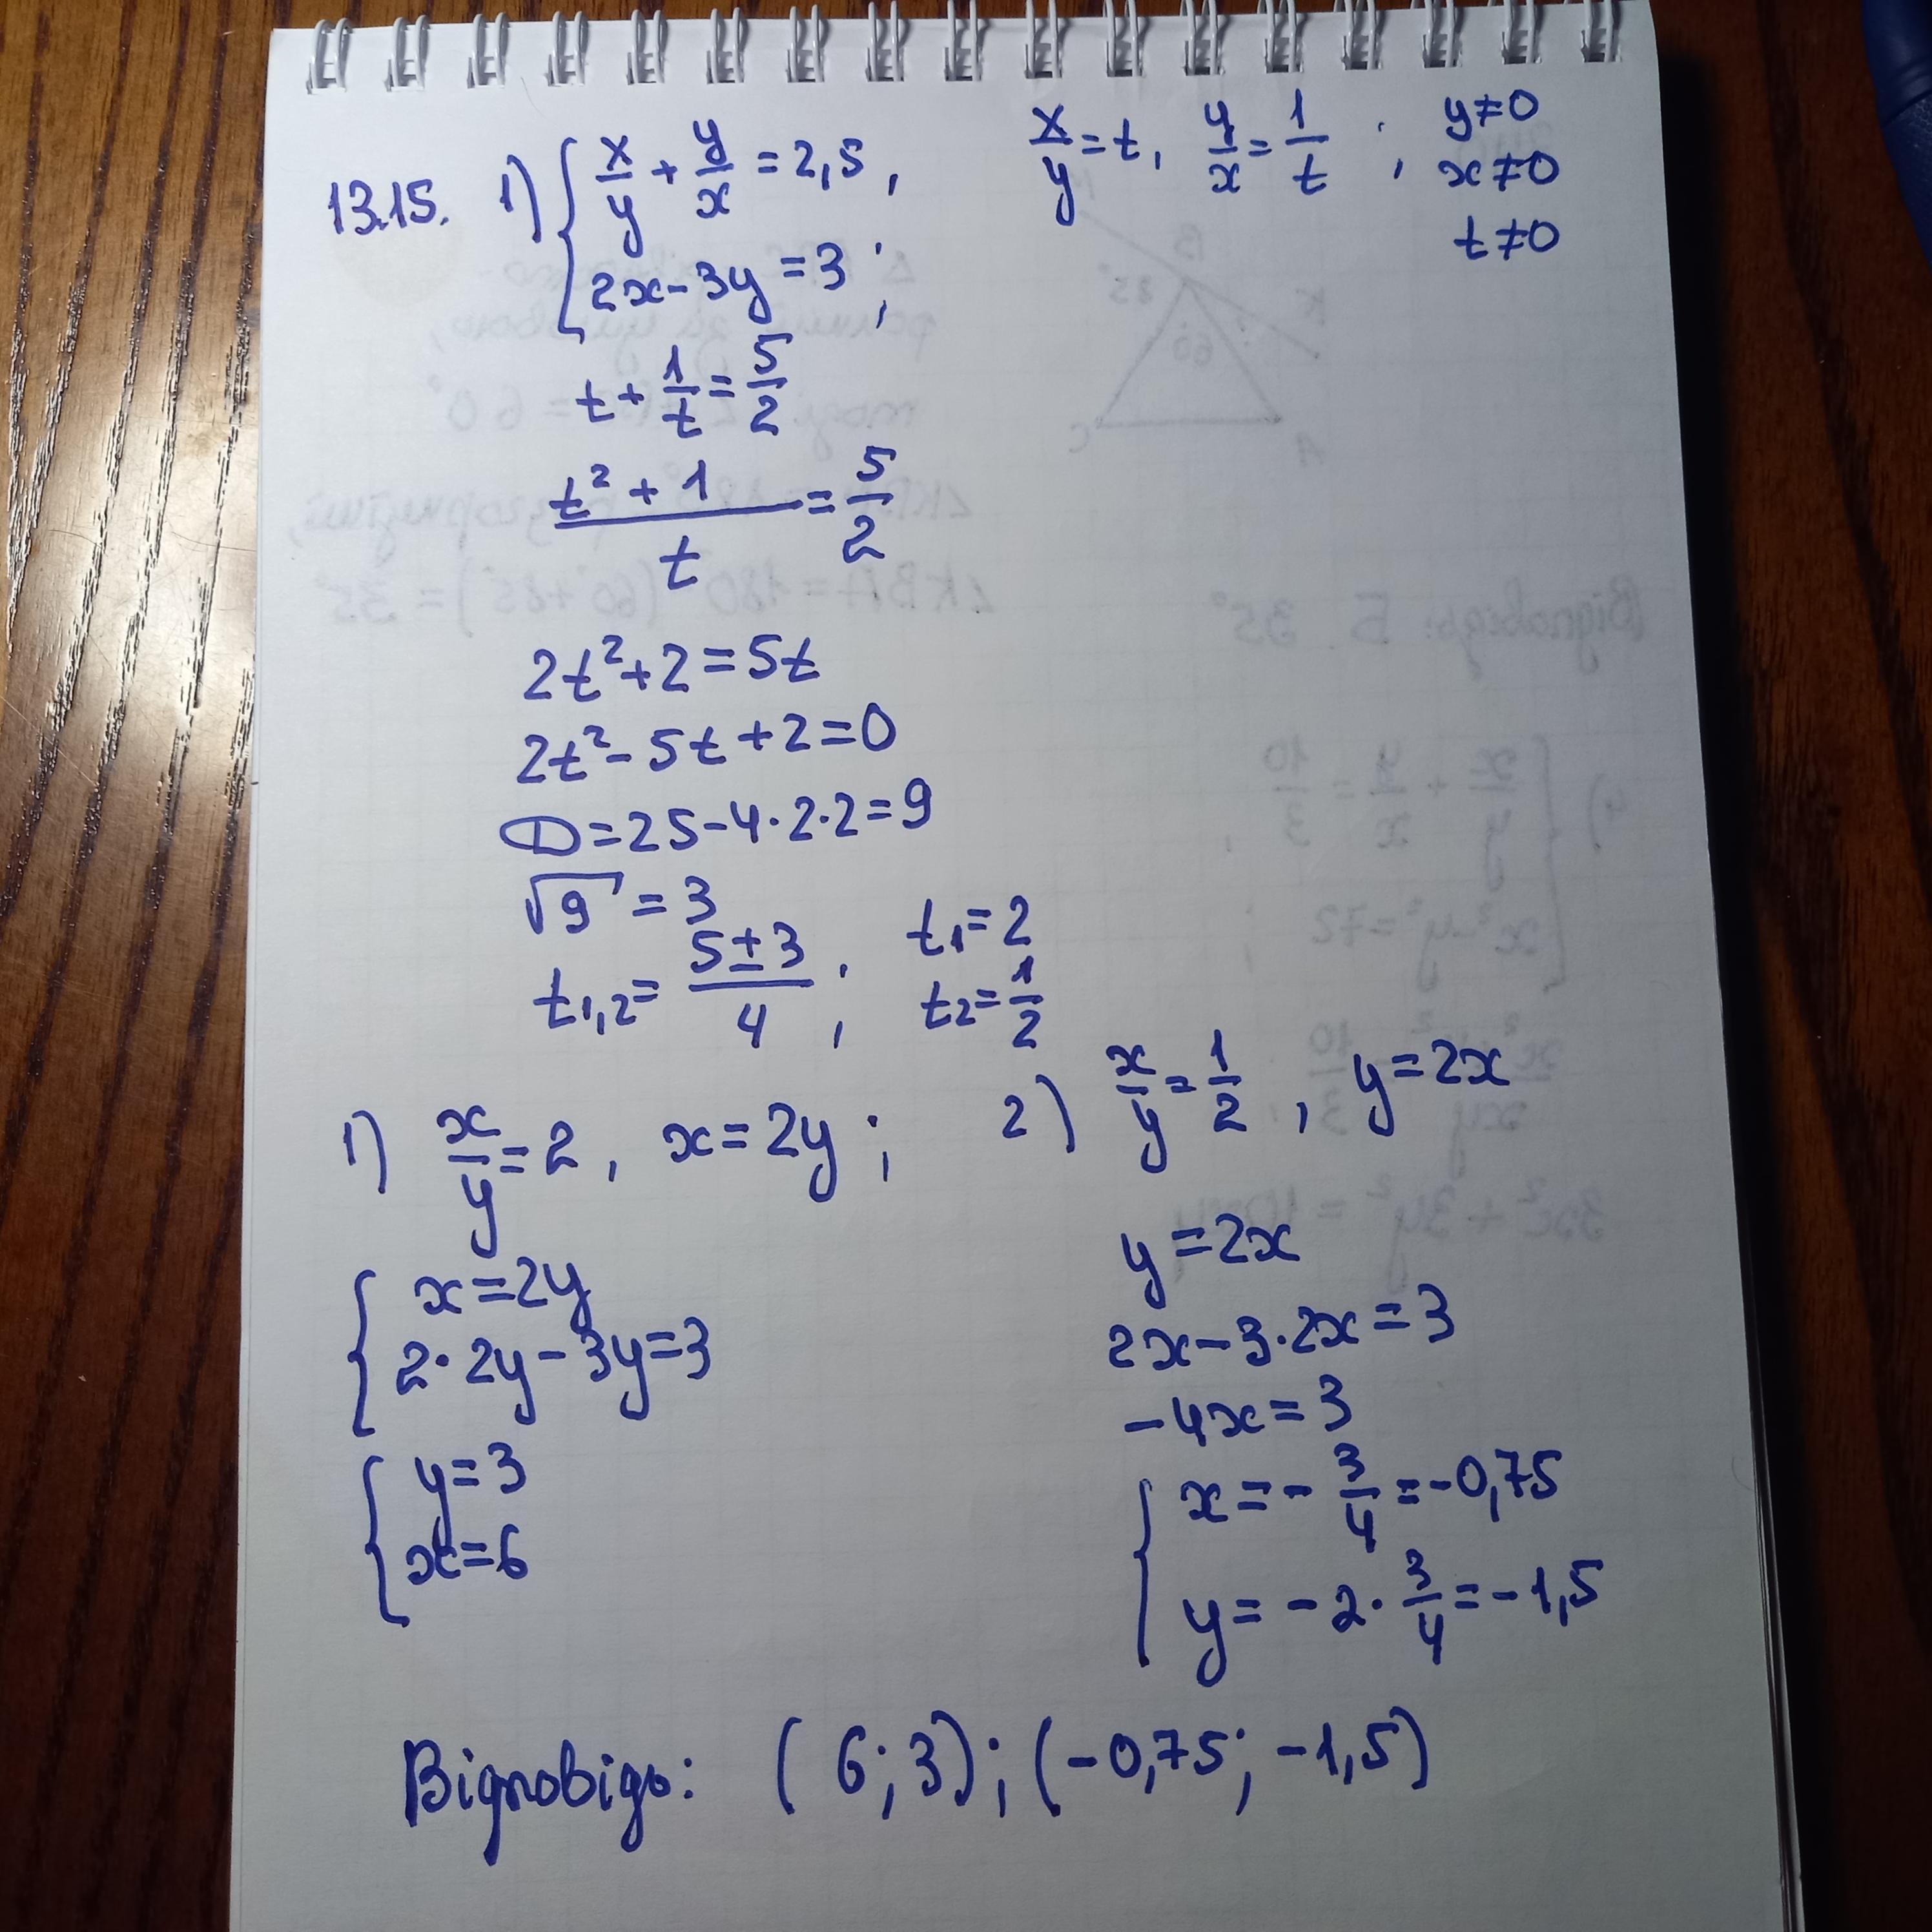 13.15. 1) { x/y + y/x = 2,5 , x/y = t, y/x = 1/t ; y ≠ 0
x ≠ 0
2x - 3y = 3 ; t ≠ 0
t + 1/t = 5/2
(t² + 1)/t = 5/2
2t² + 2 = 5t
2t² - 5t + 2 = 0
D = 25 - 4·2·2 = 9
√9 = 3
t₁,₂ = (5 ± 3)/4 ; t₁ = 2
t₂ = 1/2
1) x/y = 2 , x = 2y ;
{ x = 2y
2·2y - 3y = 3
{ y = 3
x = 6
2) x/y = 1/2 , y = 2x
y = 2x
2x - 3·2x = 3
-4x = 3
{ x = - 3/4 = -0,75
y = -2· 3/4 = -1,5
Відповідь: (6; 3); (-0,75; -1,5)